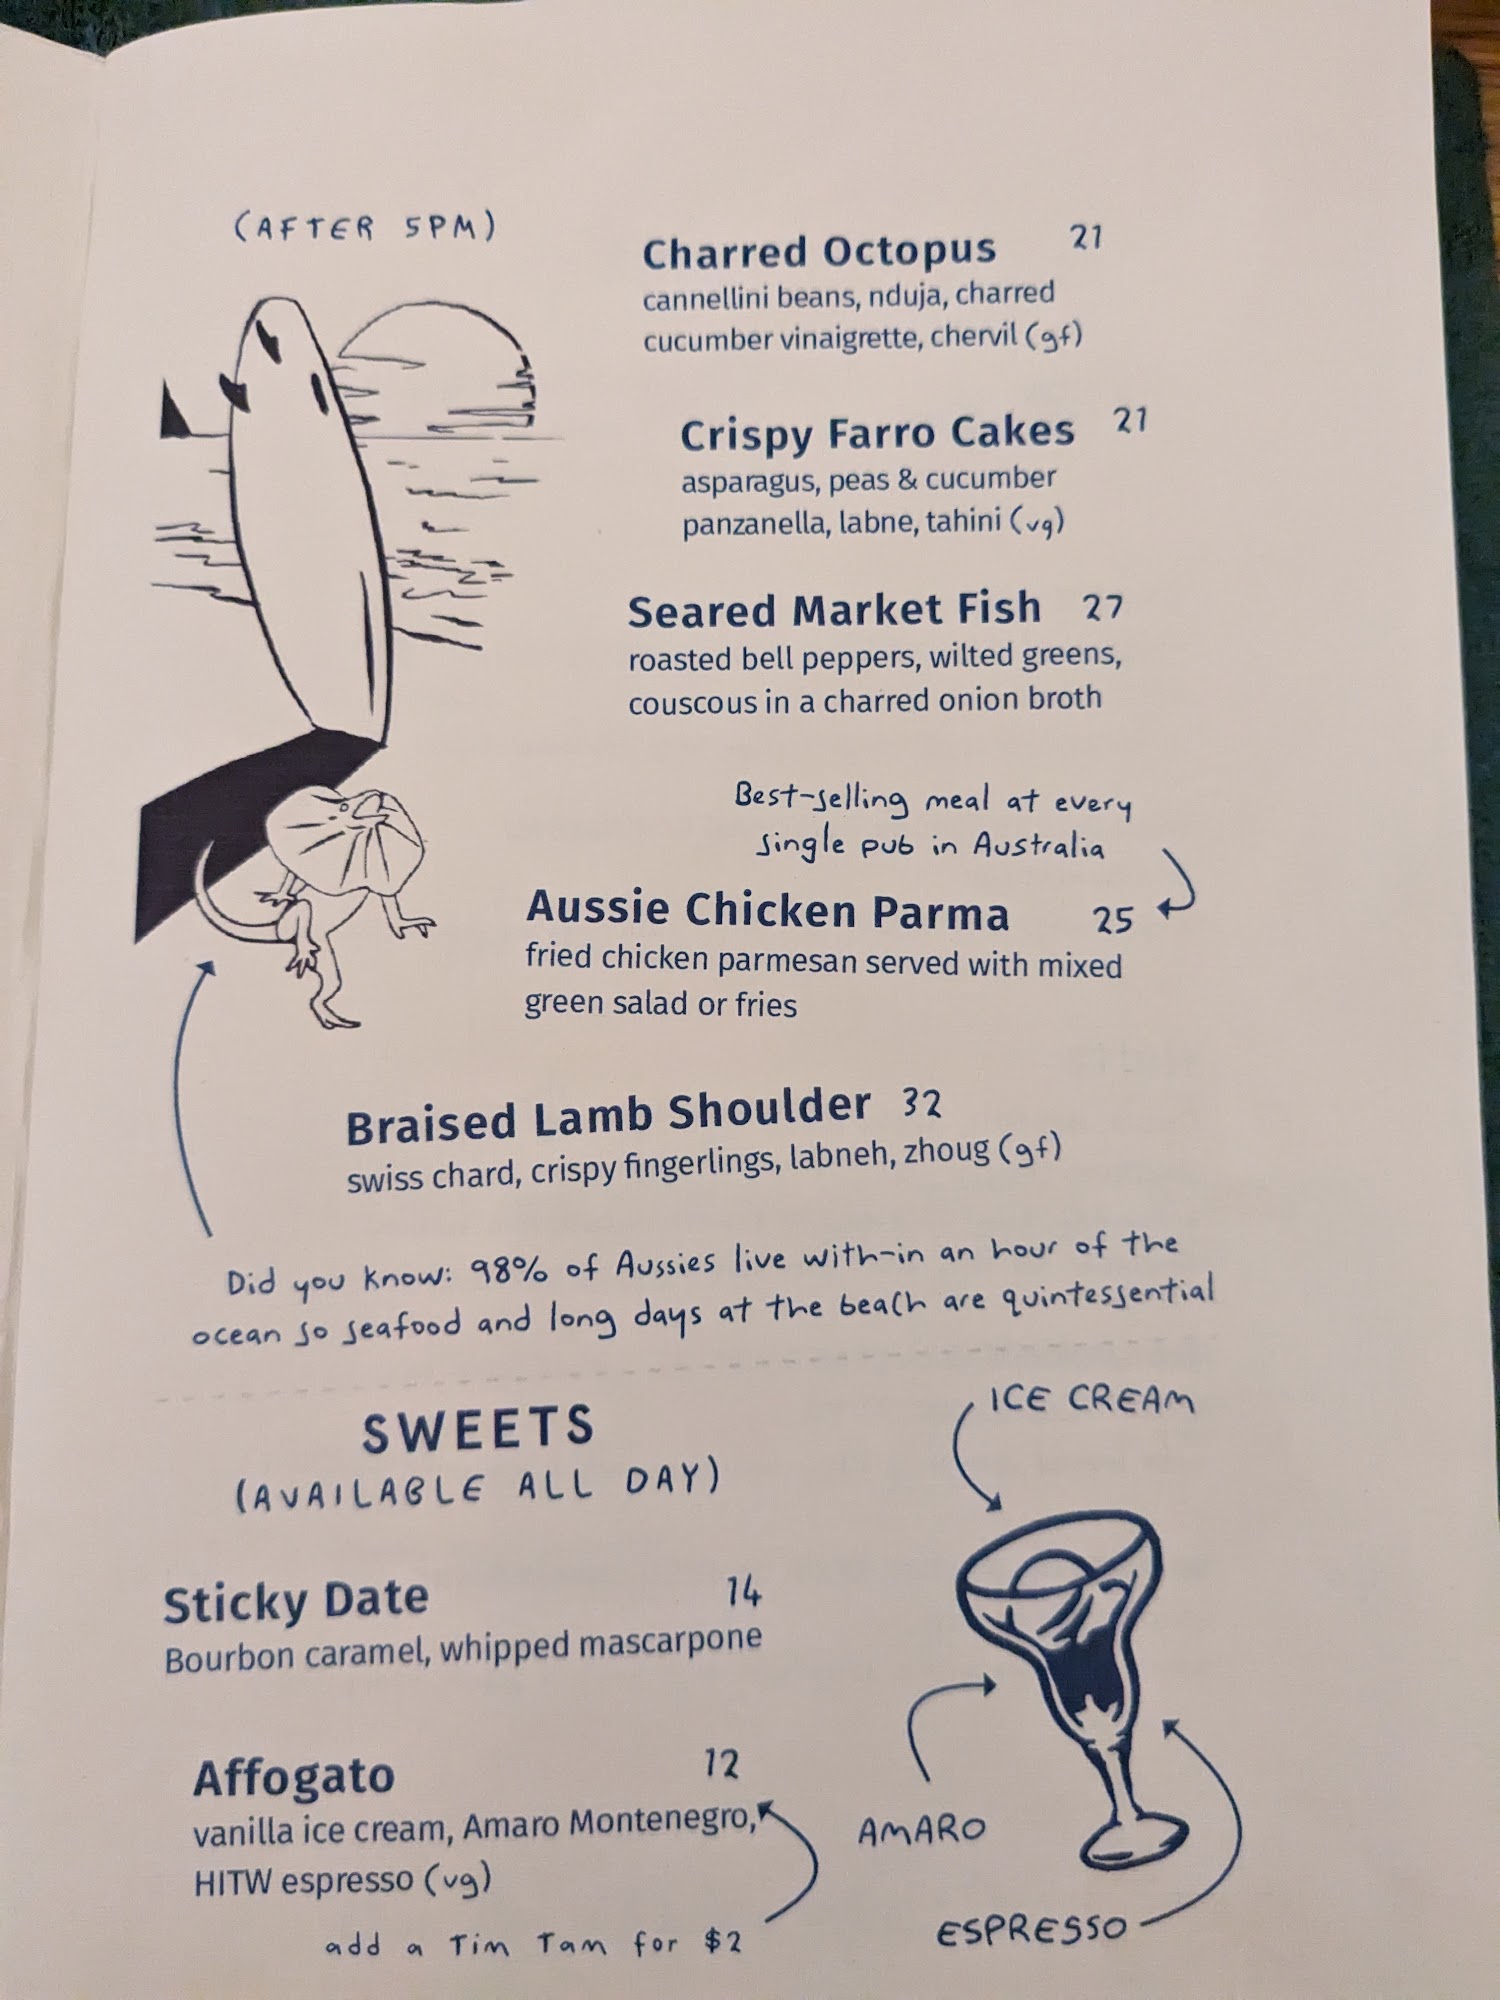 (AFTER 5PM)
Charred Octopus 21
cannellini beans, nduja, charred
cucumber vinaigrette, chervil (gf)
Crispy Farro Cakes 21
asparagus, peas & cucumber
panzanella, labne, tahini (vg)
Seared Market Fish 27
roasted bell peppers, wilted greens,
couscous in a charred onion broth
Best-selling meal at every
single pub in Australia
Aussie Chicken Parma 25
fried chicken parmesan served with mixed
green salad or fries
Braised Lamb Shoulder 32
swiss chard, crispy fingerlings, labneh, zhoug (gf)
Did you know: 98% of Aussies live with-in an hour of the
ocean so seafood and long days at the beach are quintessential
SWEETS
(AVAILABLE ALL DAY)
Sticky Date 14
Bourbon caramel, whipped mascarpone
Affogato 12
vanilla ice cream, Amaro Montenegro,
HITW espresso (vg)
add a Tim Tam for $2
ICE CREAM
AMARO
ESPRESSO